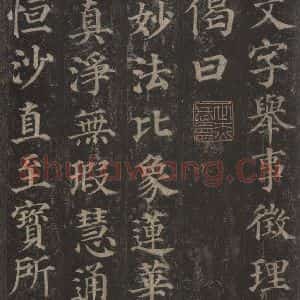 文字舉事徵理
偈曰
妙法比象蓮華
真淨無瑕慧通
恒沙直至寶所
Shufawang.CN